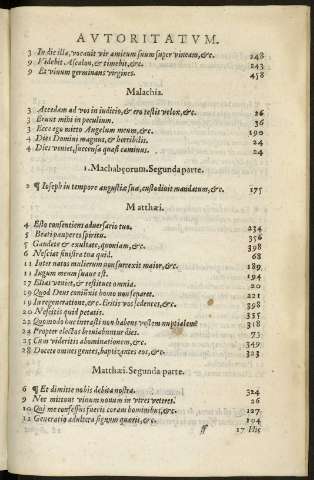 AVTORITATVM.
3 In die illa, vocauit vir amicum suum super vineam, &c. 248
9 Videbit Ascalon, & timebit, &c. 243
9 Et vinum germinans virgines. 458
Malachia.
3 Accedam ad vos in iudicio, & ero testis velox, &c. 26
3 Erunt mihi in peculium. 36
3 Ecce ego mitto Angelum meum, &c. 190
4 Dies Domini magnus, & horribilis. 24
4 Dies veniet, succensa quasi caminus. 24
1. Machabęorum. Segunda parte.
2 ¶ Ioseph in tempore angustiæ suæ, custodiuit mandatum, &c. 175
Matthæi.
4 Esto consentiens aduersario tuo. 234
5 Beati pauperes spiritu. 356
5 Gaudete & exultate, quoniam, &c. 398
6 Nesciat sinistra tua quid. 68
11 Inter natos mulierum non surrexit maior, &c. 189
11 Iugum meum suaue est. 194
17 Elias veniet, & restituet omnia. 20
19 Quod Deus coniũxit homo non separet. 221
19 In regeneratione, &c. Eritis vos sedentes, &c. 398
20 Nescitis quid petatis. 355
22 Quomodo huc intrasti non habens vestem nuptialem? 318
24 Propter electos breuiabuntur dies. 73
25 Cum videritis abominationem, &c. 349
28 Docete omnes gentes, baptizantes eos, &c. 323
Matthæi. Segunda parte.
6 ¶ Et dimitte nobis debita nostra. 324
9 Nec mittunt vinum nouum in vtres veteres. 26
10 Qui me confessus fuerit coram hominibus, &c. 127
12 Generatio adultera signum quærit, &c. 194
ff 17 Hic